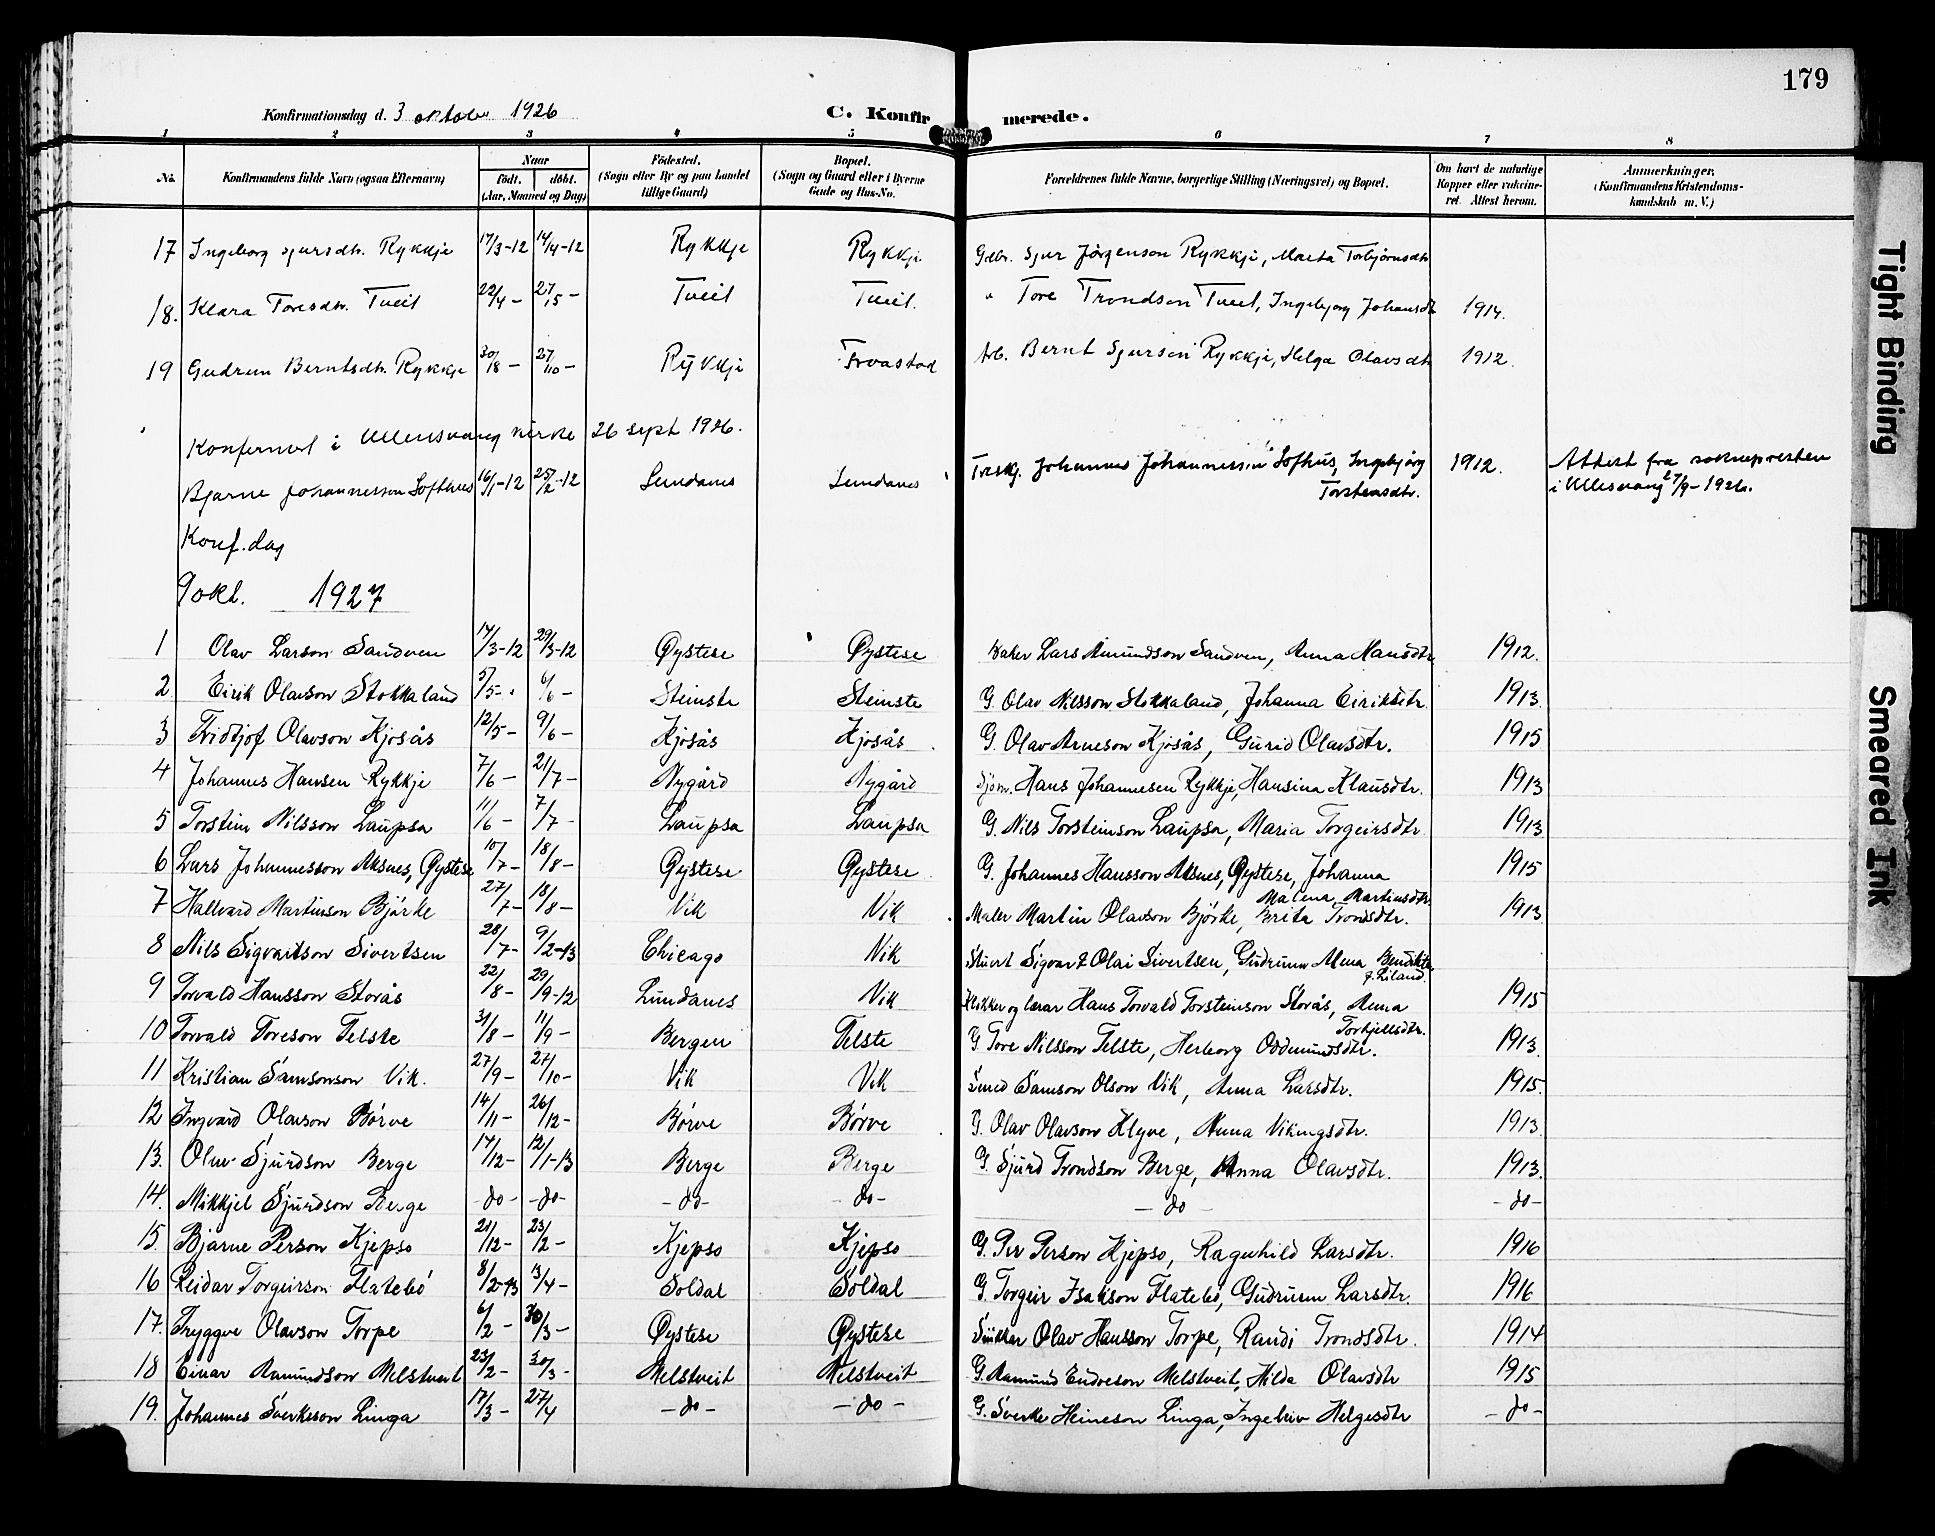 179
Konfirmationsdag d. 3 oktober 1926
C. Konfirmerede.
1 2 3 4 5 6 7 8
No. Konfirmandens fulde Navn (ogsaa Efternavn) Naar født. døbt. (Aar, Maaned og Dag) Födested. (Sogn eller By og paa Landet tillige Gaard) Bopæl. (Sogn og Gaard eller i Byerne Gade og Hus-No. Forældrenes fulde Navne, borgerlige Stilling (Næringsvei) og Bopæl. Om havt de naturlige Kopper eller vakcineret. Attest herom. Anmerkninger. (Konfirmandens Kristendomskundskab m. V.)
17 Ingeborg Sjursdtr. Rykkje 17/3-12 14/4-12 Rykkje Rykkje Gdbr. Sjur Jørgenson Rykkje, Marta Torbjørnsdtr
18. Klara Toresdtr. Tveit 22/4 - 27/5 - Tveit Tveit. " Tore Trondson Tveit, Ingebjorg Johansdtr 1914.
19 Gudrun Berntsdtr. Rykkje 30/8 - 27/10 - Rykkje Troastad Arb. Bernt Sjurson Rykkje, Helga Olavsdtr 1912.
Konfermert i Ullensvang kirke 26 sept 1926.
Bjarne Johannesson Lofthus 16/1-12 25/2-12 Sundanes Sundanes Johannes Johannesson Lofthus, Ingebjörg Torsteinsdtr. 1912. Attest fra soknepresten
i Ullensvang 27/9-1926.
Konf. dag
9 okt. 1927
1 Olav Larson Sandven 14/3-12 29/3-12 Øystese Øystese Baker Lars Amundson Sandven, Anna Hansdtr 1912.
2 Eirik Olavson Stokkaland 5/5- 6/6 - Steinstø Steinstø G. Olav Nilsson Stokkaland, Johanna Eiriksdtr. 1913.
3 Fridtjof Olavson Kjosås 12/5- 9/6 - Kjosås Kjosås G. Olav Arneson Kjosås, Gurid Olavsdtr. 1915
4 Johannes Hansen Rykkje 7/6 - 21/7 - Nygård Nygård Sjøm. Hans Johannesen Rykkje, Hansina Klausdtr. 1913
5 Torstein Nilsson Laupsa 11/6 - 7/7 - Laupsa Laupsa G. Nils Torsteinson Laupsa, Maria Torgeirsdtr. 1913
6 Lars Johannesson Aksnes, Øystese 10/7 - 18/8 - Øystese Øystese G. Johannes Hansson Aksnes, Øystese, Johanna Malena Martinsdtr. 1915
7 Hallvard Martinson Björke 27/7 - 18/8 - Vik Vik Maler Martin Olavson Björke, Brita Trondsdtr. 1913
8 Nils Sigvartson Sivertsen 28/7 - 9/2-13 Chicago Vik Stuert Sigvart Olai Sivertsen, Gudrunn Alena
9 Torvald Hansson Storås 22/8 - 29/9-12 Lundanes Vik Klokker og lærar Hans Torvald Torsteinson Storås, Anna Torkjellsdtr. 1915
10 Torvald Toreson Telste 31/8 - 11/9 - Bergen Telste G. Tore Nilsson Telste, Herborg Oddmundsdtr. 1913
11 Kristian Samsonson Vik. 27/9 - 27/10- Vik Vik Smed Samson Olson Vik, Anna Larsdtr. 1915.
12 Ingvard Olavson Börve 14/11- 26/12- Börve Börve G. Olav Olavson Klyve, Anna Vikingsdtr. 1913
13. Olav Sjurdson Berge 17/12- 12/1-13 Berge Berge G. Sjurd Trondson Berge, Anna Olavsdtr. 1913.
14. Mikkjel Sjurdson Berge - do - - do - - do - - do - - do - - do -
15. Bjarne Person Kjepso 21/12- 23/2 - Kjepso Kjepso G. Per Person Kjepso, Ragnhild Larsdtr. 1916
16 Reidar Torgeirson Flatebö 8/2-13 3/4 - Soldal Soldal G. Torgeir Isakson Flatebö, Gudrunn Larsdtr. 1916
17. Tryggve Olavson Torpe 6/2 - 30/3 - Øystese Øystese Snikkar Olav Hansson Torpe, Randi Trondsdtr. 1914
18 Einar Aamundson Melstveit 23/2- 30/3 - Melstveit Melstveit G. Aamund Endreson Melstveit, Hilda Olavsdtr 1915
19. Johannes Sverkeson Linga 17/3 - 27/4 - do - - do - G. Sverke Heineson Linga, Helgesdtr - do -
Tight Binding
Smeared Ink